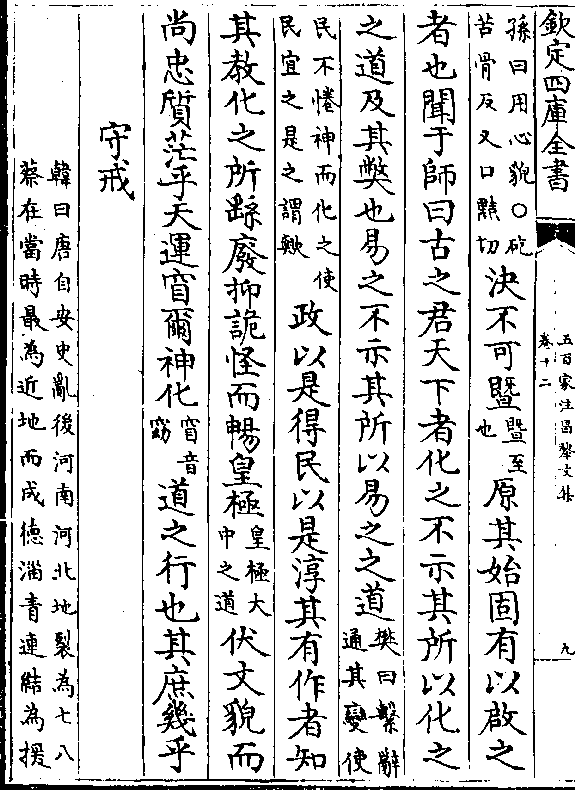 欽定四庫全書
五百家注昌黎文集
卷十二
九
孫曰用心貌○矻
苦骨反又口黠切
決不可暨
暨至
也
原其始固有以啟之
者也聞于師曰古之君天下者化之不示其所以化之
之道及其弊也易之不示其所以易之之道
樊曰繫辭
通其變使
民不惓神而化之使
民宜之是之謂歟
政以是得民以是淳其有作者知
其教化之所繇廢抑詭怪而暢皇極
皇極大
中之道
伏文貌而
尚忠質茫乎天運窅爾神化
窅音
窈
道之行也其庶幾乎
守戒
韓曰唐自安史亂後河南河北地裂為七八
蔡在當時最為近地而成德淄青連結為援